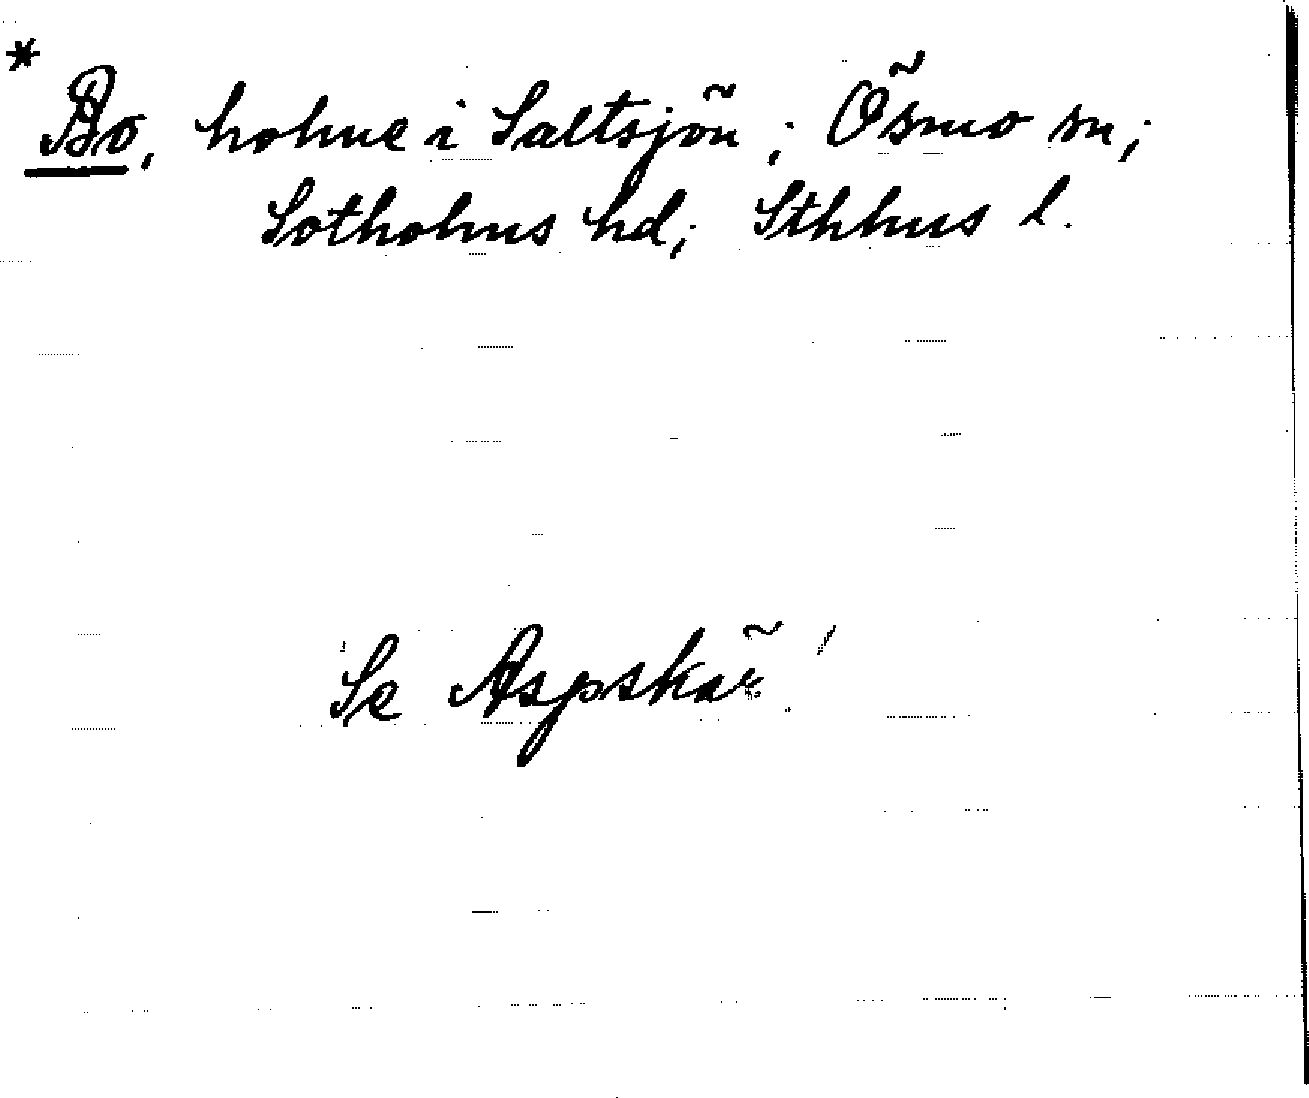 * Bo, holme i Saltsjön; Ösmo sn;
Sotholms hd; Sthlms l.
Se Aspskär!